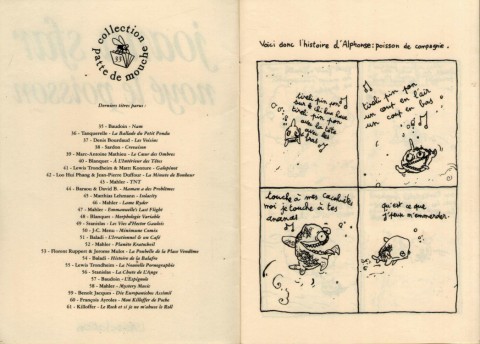 collection
patte de mouche
Derniers titres parus :
35 - Baudoin - Nam
36 - Tanquerelle - La Ballade du Petit Pendu
37 - Denis Bourdaud - Les Voisins
38 - Sardon - Crevaison
39 - Marc-Antoine Mathieu - Le Cœur des Ombres
40 - Blanquet - À l'Intérieur des Têtes
41 - Lewis Trondheim & Matt Konture - Galopinot
42 - Loo Hui Phang & Jean-Pierre Duffour - La Minute de Bonheur
43 - Mahler - TNT
44 - Baraou & David B. - Maman a des Problèmes
45 - Matthias Lehmann - Isolacity
46 - Mahler - Lame Ryder
47 - Mahler - Emmanuelle's Last Flight
48 - Blanquet - Morphologie Variable
49 - Stanislas - Les Vies d'Hector Gaulois
50 - J.C. Menu - Meinimum Comix
51 - Baladi - L'Irrationnel & un Café
52 - Mahler - Planète Kratochvil
53 - Florent Ruppert & Jerome Mulot - La Poubelle de la Place Vendôme
54 - Baladi - Histoire de la Balafre
55 - Lewis Trondheim - La Nouvelle Pornographie
56 - Stanislas - La Chute de l'Ange
57 - Baudoin - L'Espignole
58 - Mahler - Mystery Music
59 - Benoît Jacques - Dix Européaniches Assimil
60 - François Ayroles - Mon Killoffer de Poche
61 - Killoffer - Le Rock et si je ne m'abuse le Roll
joann sfar
noyé le poisson
Voici donc l'histoire d'Alphonse : poisson de compagnie.
tireli pin pon
sur le
tireli pin pon
tireli pin pon
un coup en l'air
un coup en bas
touche à mes cacahuètes
moi je touche à tes
ananas
qu'est ce que
j'peux m'emmerder.